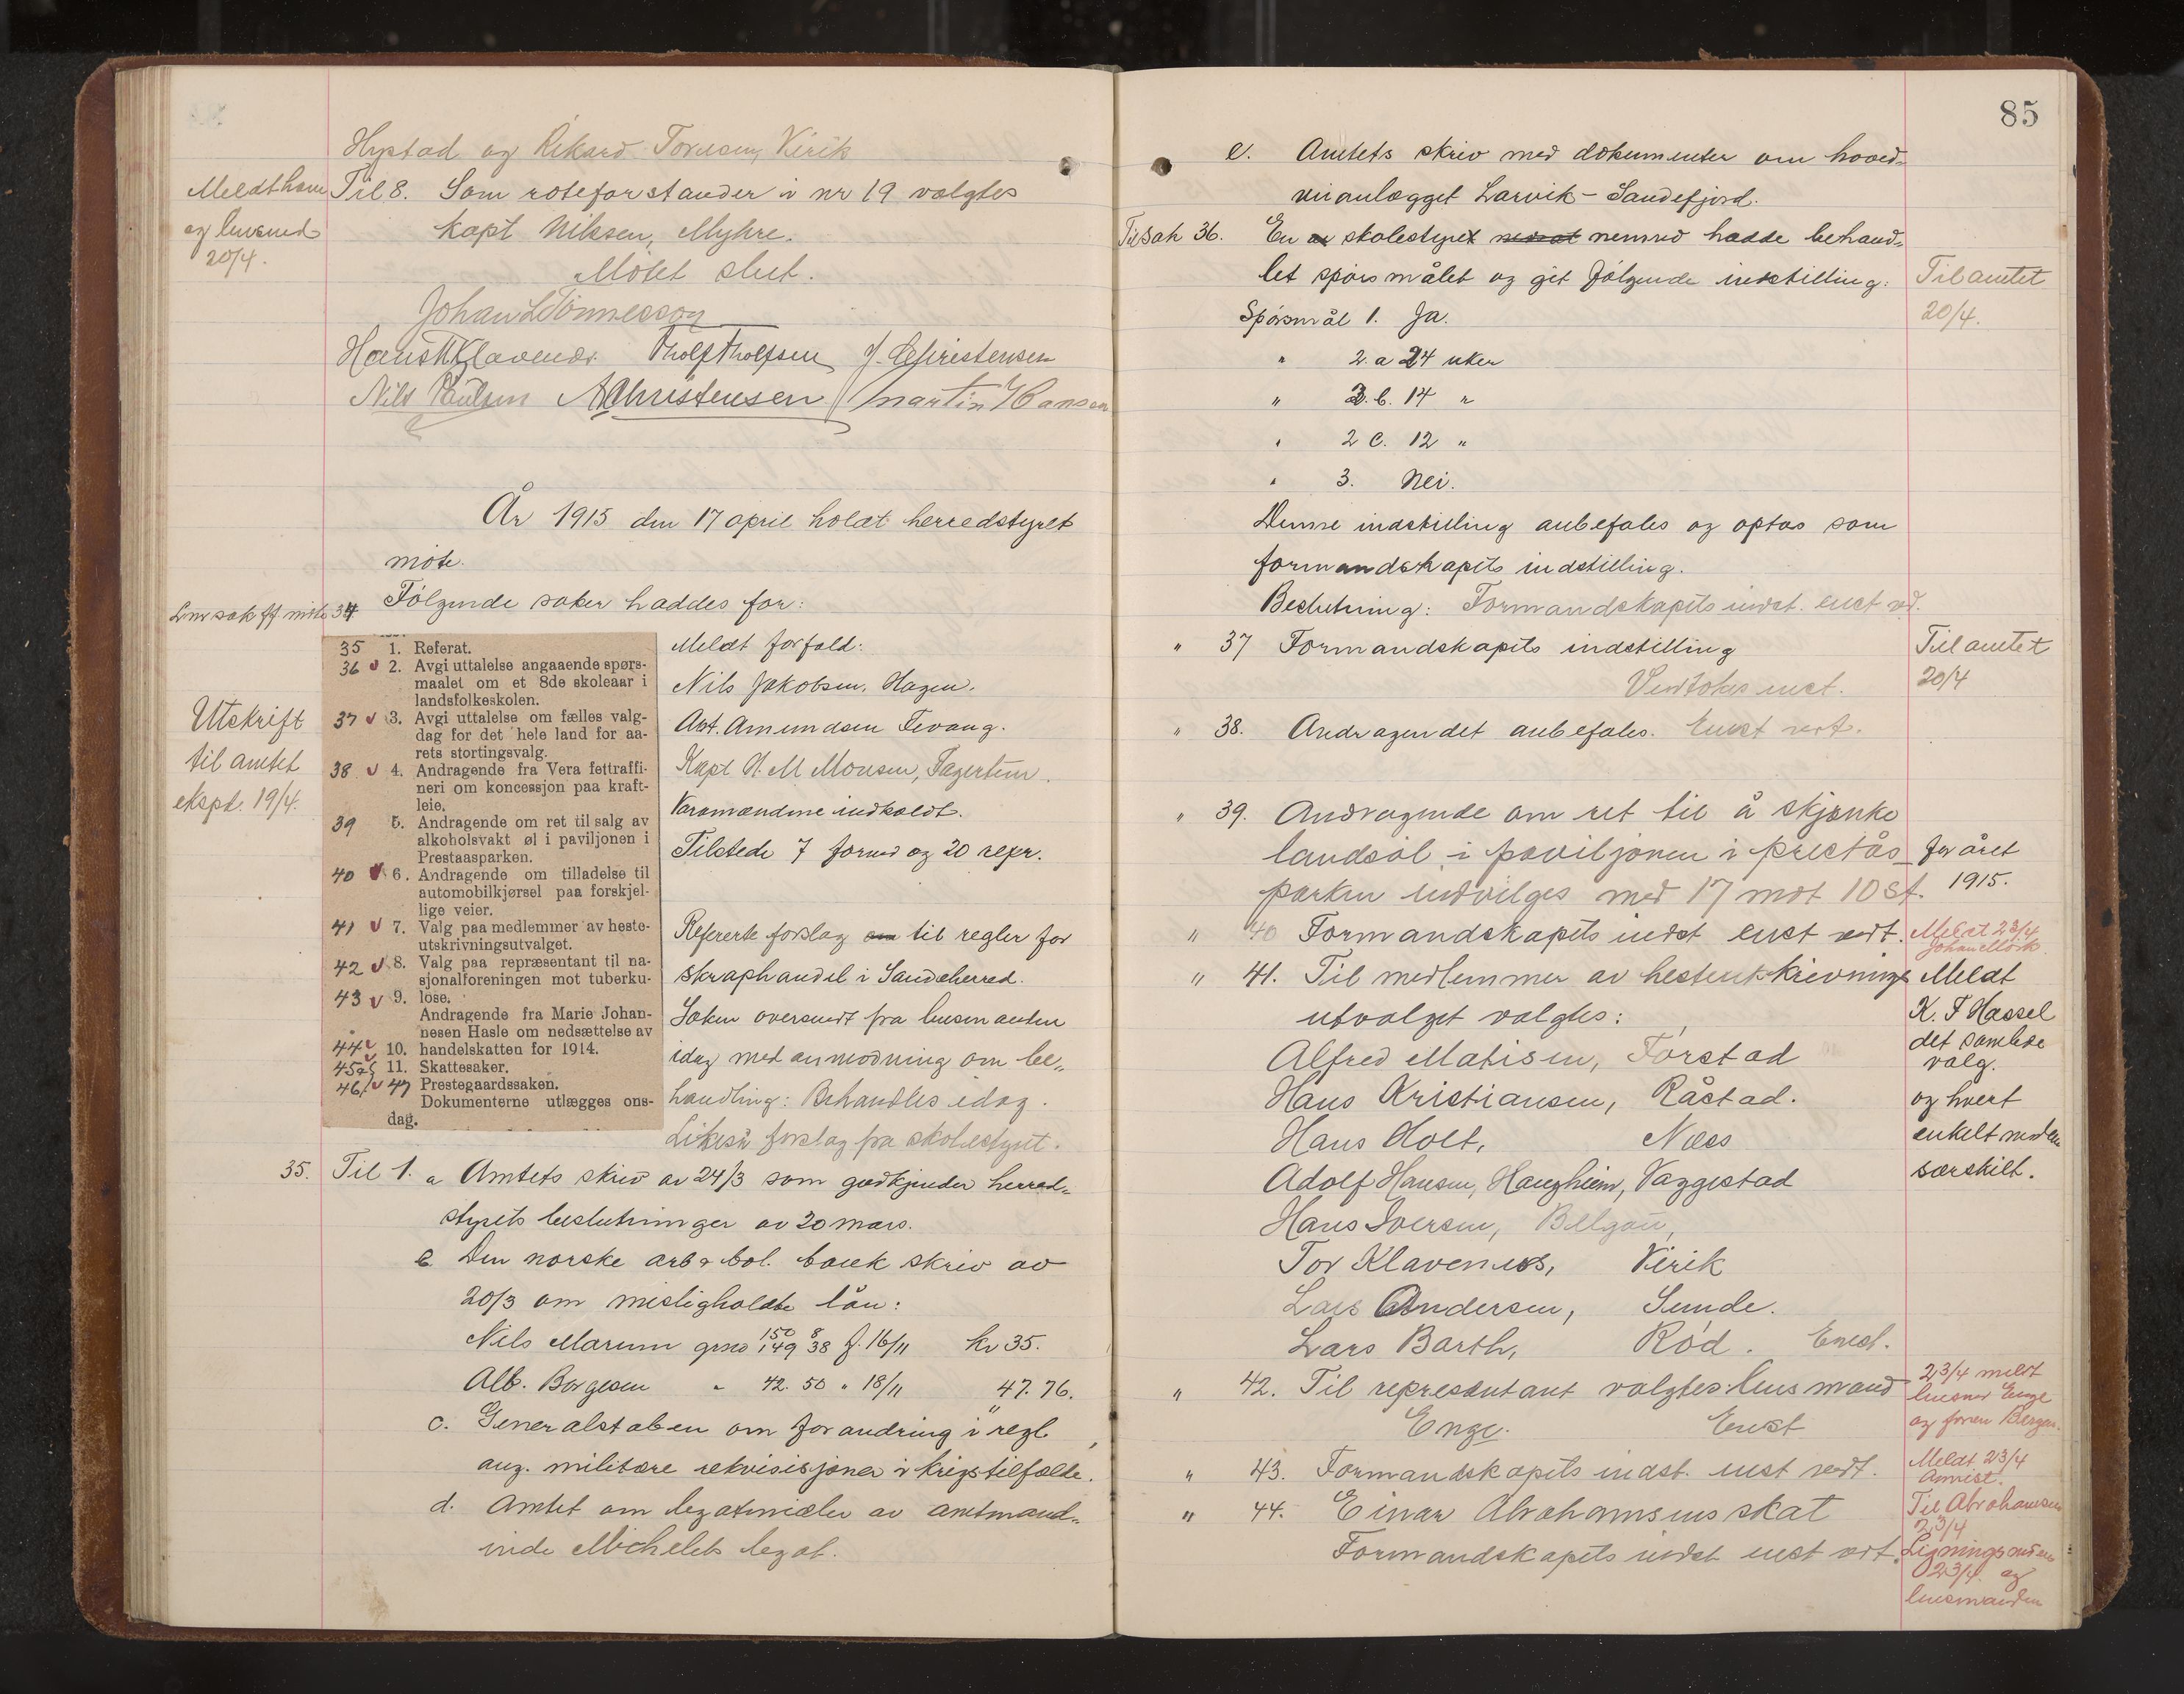 Hystad og Rikard Toresen, Virik
Meldt ham
og lensmd
20/4.
Til 8. Som roteforstander i nr 19 valgtes
kapt Nilsen, Myhre.
Møtet slut.
Johan L Tønnesson
Hans M Klavenæs Tholf Tholfsen J. Christensen
Nils Paulsen A Christensen Martin Hansen
År 1915 den 17 april holdt herredstyret
møte.
Følgende saker haddes for:
34
35 1. Referat.
36 2. Avgi uttalelse angaaende spørs-
maalet om et 8de skoleaar i
landsfolkeskolen.
37 3. Avgi uttalelse om fælles valg-
dag for det hele land for aa-
rets stortingsvalg.
38 4. Andragende fra Vera fettraffi-
neri om koncessjon paa kraft-
leie.
39 5. Andragende om ret til salg av
alkoholsvakt øl i paviljonen i
Prestaasparken.
40 6. Andragende om tilladelse til
automobilkjørsel paa forskjel-
lige veier.
41 7. Valg paa medlemmer av heste-
utskrivningsutvalget.
42 8. Valg paa repræsentant til na-
sjonalforeningen mot tuberku-
43 9. løse.
Andragende fra Marie Johan-
nesen Hasle om nedsættelse av
44 10. handelskatten for 1914.
45 11. Skattesaker.
46 47 Prestegaardssaken.
Dokumenterne utlægges ons-
dag.
Utskrift
til amtet
ekspd. 19/4.
Meldt forfald:
Nils Jakobsen, Hagen.
Ant. Amundsen Fevang.
Kapt H. M Monsen, Fagertun.
Varamændene indkaldt.
Tilstede 7 formd og 20 repr.
Refererte forslag om til regler for
skraphandel i Sandeherred.
Saken oversendt fra lensmanden
idag med anmodning om be-
handling: Behandles idag.
Likeså forslag fra skolestyret.
35. Til 1. a Amtets skriv av 24/3 som godkjender herred-
styrets beslutninger av 20 mars.
b Den norske arb & bol. bank skriv av
20/3 om misligholdte lån:
Nils Marum grno 150/149 8/38 f. 16/11 kr 35.
Alb. Borgesen " 42. 50 " 18/11 " 47.76.
c. Generalstaben om forandring i regl.
ang. militære rekvisisjoner i krigstilfælde.
d. Amtet om legatmidler av amtmand-
inde Michelets legat.
85
e. Amtets skriv med dokumenter om hoved-
veianlægget Larvik - Sandefjord.
Til sak 36. En av skolestyret nedsat nemnd hadde behand-
let spørsmålet og git følgende indstilling:
Til amtet
20/4.
Spørsmål 1. Ja.
" 2. a 24 uker
" 2. b. 14 "
" 2 c. 12 "
" 3. Nei.
Denne indstilling anbefales og optas som
formandskapets indstilling.
Beslutning: Formandskapets indst. enst vd.
" 37 Formandskapets indstilling
Vedtokes enst.
Til amtet
20/4
" 38. Andragendet anbefales. Enst vedt.
" 39. Andragende om ret til å skjænke
landsøl i paviljonen i prestås-
parken indvilges med 17 mot 10 st.
for året
1915.
" 40 Formandskapets indst enst vedt.
Meldt 23/4
Johan Mørk
" 41. Til medlemmer av hesteutskrivnings
utvalget valgtes:
Alfred Matisen, Førstad
Hans Kristiansen, Råstad.
Hans Holt, Næs
Adolf Hansen, Haugheim, Vaggestad
Hans Iversen, Bulgau,
Tor Klavenes, Virik
Lars Andersen, Sunde.
Lars Barth, Rød. Enst.
Meldt
K. F Hassel
det samlede
valg.
og hvert
enkelt medlem
særskilt.
" 42. Til representant valgtes lensmand
Enge. Enst
23/4 meldt
lensmd Enge
og foren Bergen.
" 43. Formandskapets indst. enst vedt.
Meldt 23/4
" 44. Einar Abrahamsens skat
Formandskapets indst enst vedt.
Til Abrahamsen
23/4
Ligningsnden
23/4 og
lensmanden